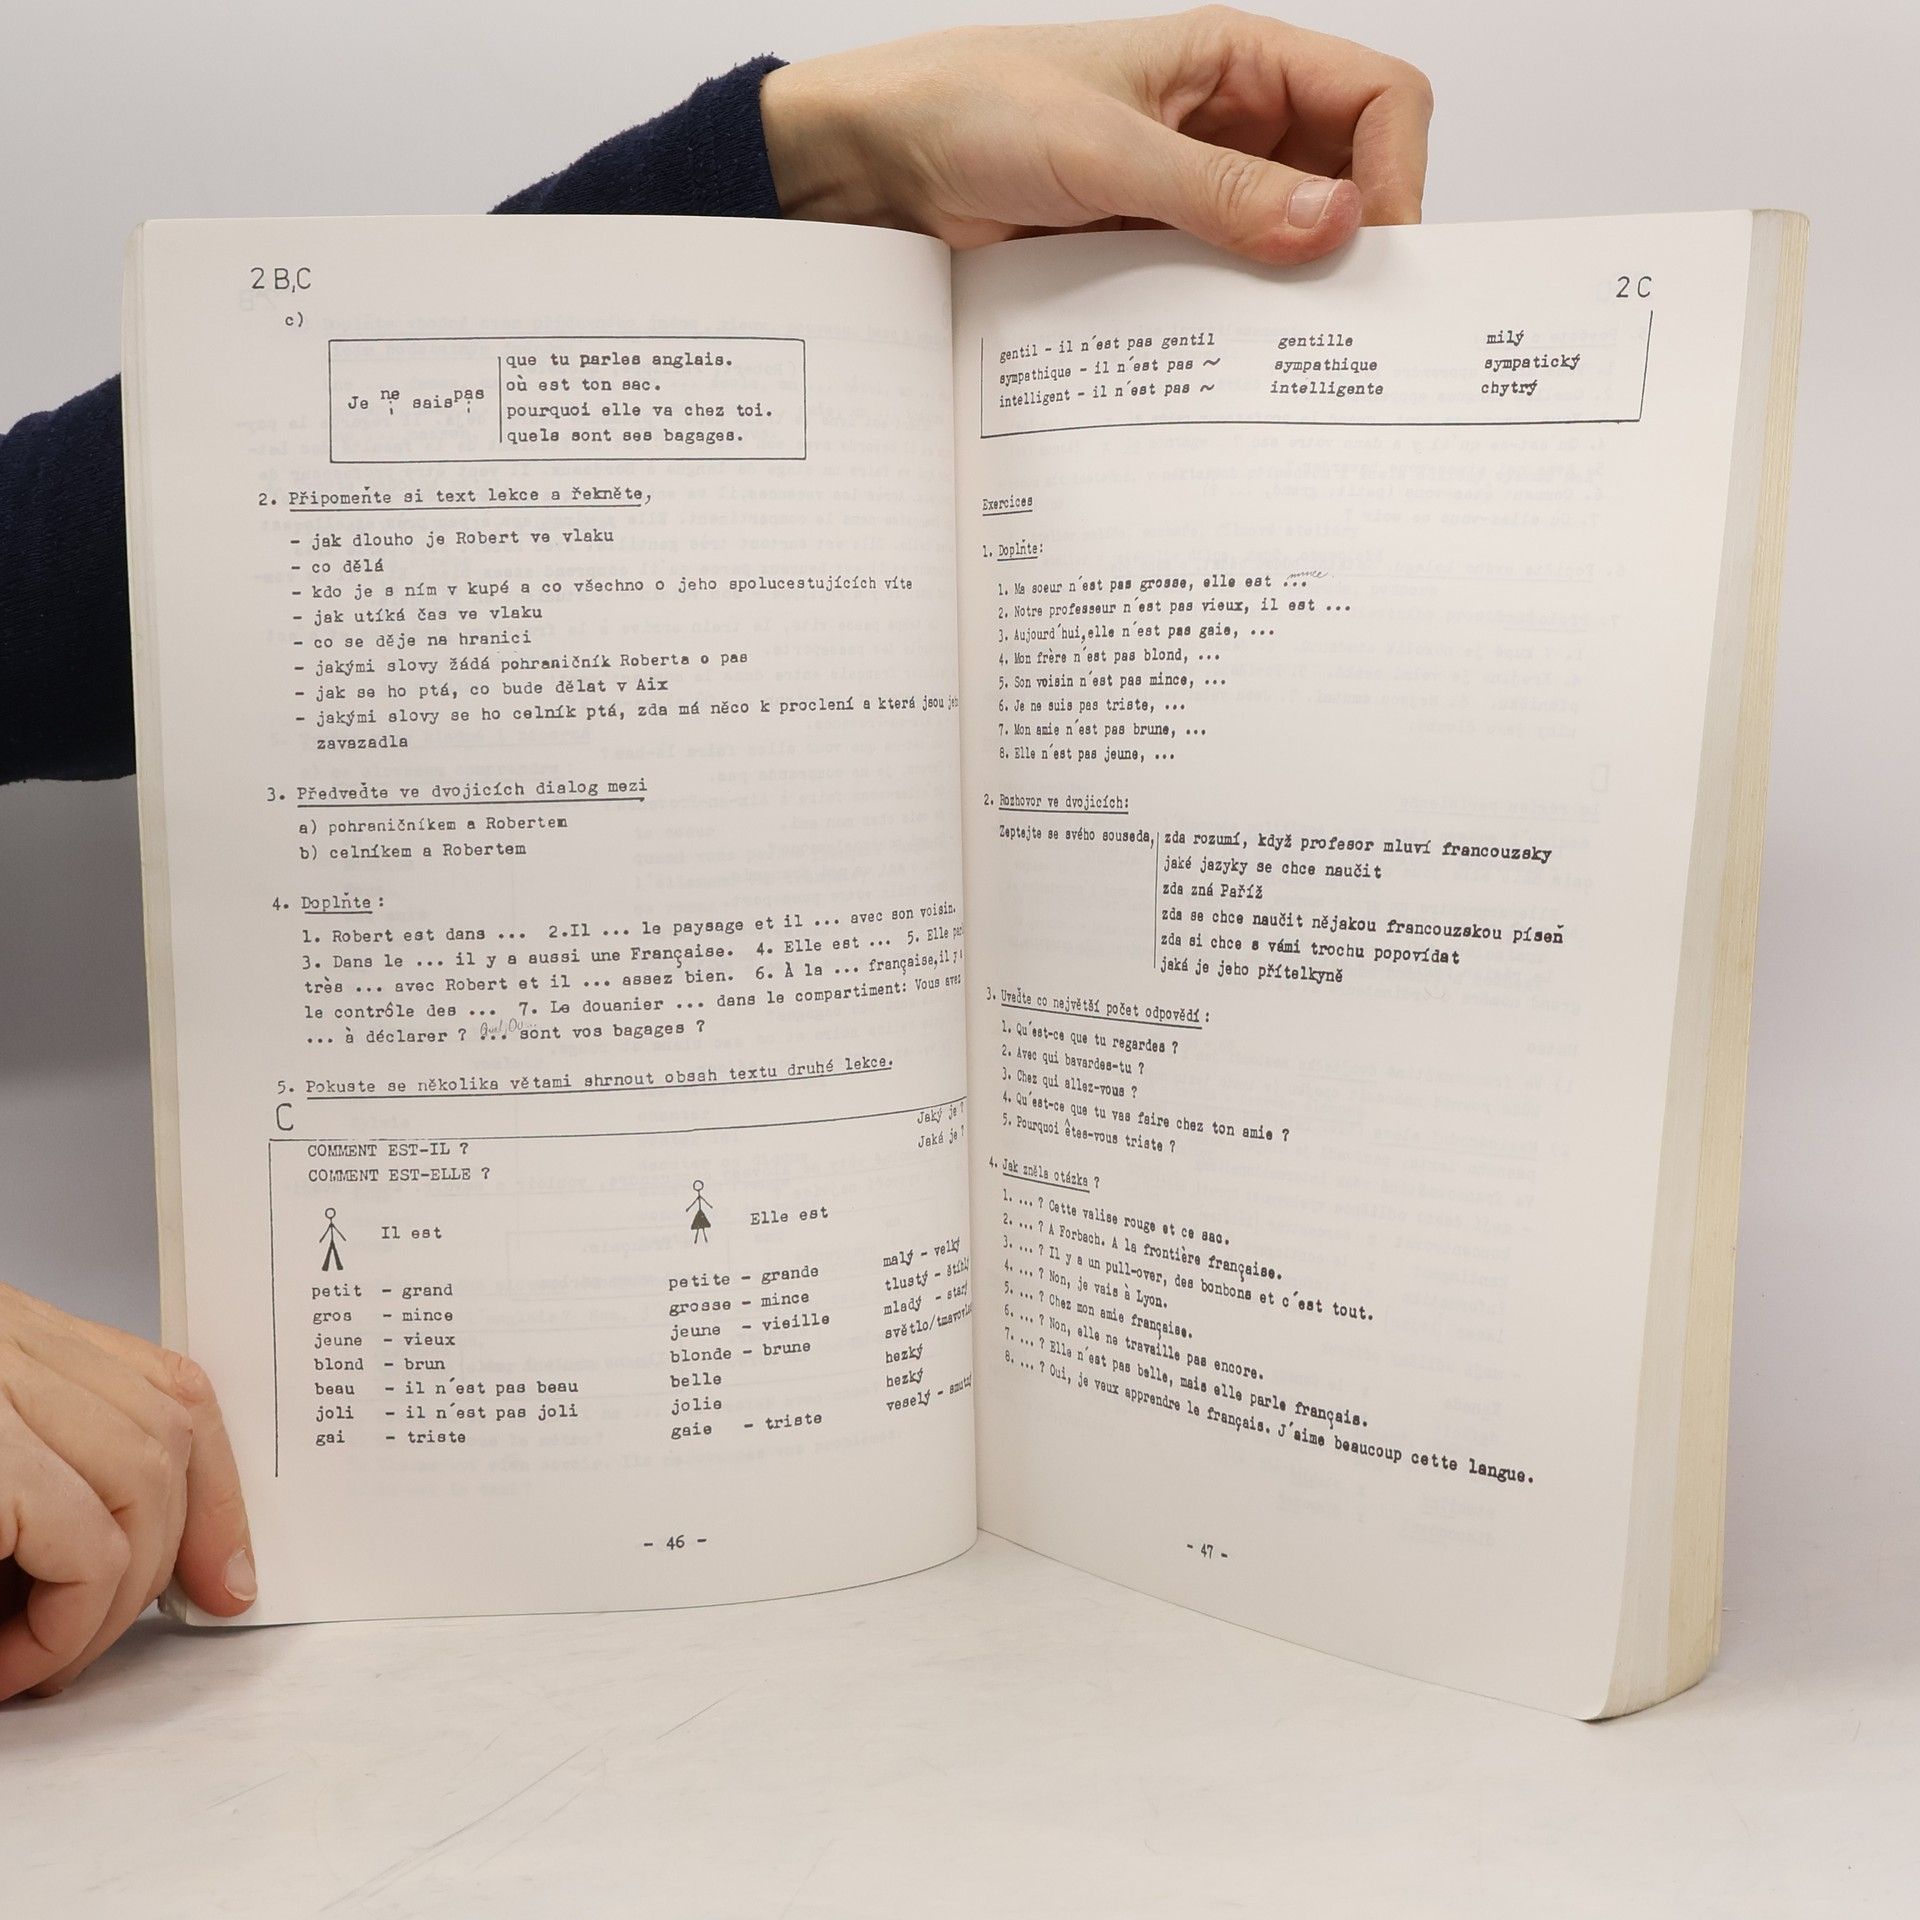 2 B,C
c)
Je ne sais pas
que tu parles anglais.
où est ton sac.
pourquoi elle va chez toi.
quels sont ses bagages.
2. Připomeňte si text lekce a řekněte,
- jak dlouho je Robert ve vlaku
- co dělá
- kdo je s ním v kupé a co všechno o jeho spolucestujících víte
- jak utíká čas ve vlaku
- co se děje na hranici
- jakými slovy žádá pohraničník Roberta o pas
- jak se ho ptá, co bude dělat v Aix
- jakými slovy se ho celník ptá, zda má něco k proclení a která jsou
zavazadla
3. Předveďte ve dvojicích dialog mezi
a) pohraničníkem a Robertem
b) celníkem a Robertem
4. Doplňte :
1. Robert est dans ... 2.Il ... le paysage et il ... avec son voisin.
3. Dans le ... il y a aussi une Française. 4. Elle est ... 5. Elle
très ... avec Robert et il ... assez bien. 6. À la ... française,il y
le contrôle des ... 7. Le douanier ... dans le compartiment: Vous avez
... à déclarer ? ... sont vos bagages ?
5. Pokuste se několika větami shrnout obsah textu druhé lekce.
C
COMMENT EST-IL ? Jaký je ?
COMMENT EST-ELLE ? Jaká je ?
Il est Elle est
petit - grand petite - grande malý - velký
gros - mince grosse - mince tlustý -
jeune - vieux jeune - vieille mladý - starý
blond - brun blonde - brune
beau - il n´est pas beau belle hezký
joli - il n´est pas joli jolie hezký
gai - triste gaie - triste veselý -
- 46 -
2 C
gentil - il n´est pas gentil gentille milý
sympathique - il n´est pas ~ sympathique sympatický
intelligent - il n´est pas ~ intelligente chytrý
Exercices
1. Doplňte:
1. Ma soeur n´est pas grosse, elle est ... mince.
2. Notre professeur n´est pas vieux, il est ...
3. Aujourd´hui,elle n´est pas gaie, ...
4. Mon frère n´est pas blond, ...
5. Son voisin n´est pas mince, ...
6. Je ne suis pas triste, ...
7. Mon amie n´est pas brune, ...
8. Elle n´est pas jeune, ...
2. Rozhovor ve dvojicích:
Zeptejte se svého souseda, zda rozumí, když profesor mluví francouzsky
jaké jazyky se chce naučit
zda zná Paříž
zda se chce naučit nějakou francouzskou píseň
zda si chce s vámi trochu popovídat
jaká je jeho přítelkyně
3. Uveďte co největší počet odpovědí :
1. Qu´est-ce que tu regardes ?
2. Avec qui bavardes-tu ?
3. Chez qui allez-vous ?
4. Qu´est-ce que tu vas faire chez ton amie ?
5. Pourquoi êtes-vous triste ?
4. Jak zněla otázka ?
1. ... ? Cette valise rouge et ce sac.
2. ... ? A Forbach. A la frontière française.
3. ... ? Il y a un pull-over, des bonbons et c´est tout.
4. ... ? Non, je vais à Lyon.
5. ... ? Chez mon amie française.
6. ... ? Non, elle ne travaille pas encore.
7. ... ? Elle n´est pas belle, mais elle parle français.
8. ... ? Oui, je veux apprendre le français. J´aime beaucoup cette langue.
- 47 -